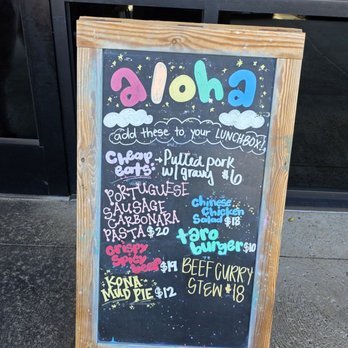 aloha
add these to your LUNCHBOX!
Cheap eats: → Pulled pork
w/gravy $6
PORTUGUESE
SAUSAGE
CARBONARA
PASTA $20
Chinese
Chicken
Salad $18
Crispy
Spicy
Beef $19
taro
burger $10
KONA
MUD PIE $12
BEEF CURRY
STEW $18